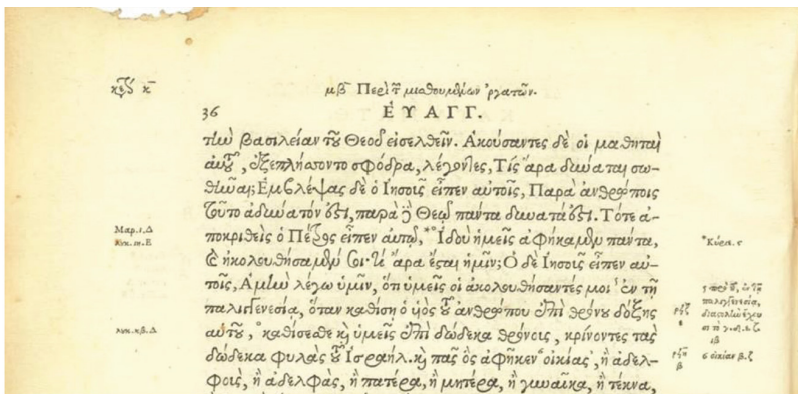 κεφ κ
μβ Περὶ τ μισθουμένων ἐργατῶν.
36
ΕΥΑΓΓ.
τὴν βασιλείαν τοῦ Θεοῦ εἰσελθεῖν. Ακούσαντες δὲ οἱ μαθηταὶ
αὐτοῦ, ἐξεπλήσσοντο σφόδρα, λέγοντες, Τίς ἄρα δύναται σω-
θῆναι; Εμβλέψας δὲ ὁ Ιησοῦς εἶπεν αὐτοῖς, Παρὰ ἀνθρώποις
τοῦτο ἀδύνατόν ἐστι, παρὰ δὲ Θεῷ πάντα δυνατά ἐστι. Τότε ἀ-
ποκριθεὶς ὁ Πέτρος εἶπεν αὐτῷ, Ιδοὺ ἡμεῖς ἀφήκαμεν πάντα,
καὶ ἠκολουθήσαμέν σοι· τί ἄρα ἔσται ἡμῖν; Ο δὲ Ιησοῦς εἶπεν αὐ-
τοῖς, Αμὴν λέγω ὑμῖν, ὅτι ὑμεῖς οἱ ἀκολουθήσαντές μοι ἐν τῇ
παλιγγενεσίᾳ, ὅταν καθίσῃ ὁ υἱὸς τοῦ ἀνθρώπου ἐπὶ θρόνου δόξης
αὐτοῦ, καθίσεσθε καὶ ὑμεῖς ἐπὶ δώδεκα θρόνους, κρίνοντες τὰς
δώδεκα φυλὰς τοῦ Ισραήλ. καὶ πᾶς ὃς ἀφῆκεν οἰκίας, ἢ ἀδελ-
φοὺς, ἢ ἀδελφὰς, ἢ πατέρα, ἢ μητέρα, ἢ γυναῖκα, ἢ τέκνα,
Μαρ. ι. Δ
Λυκ. ιη. Ε
λυκ. κβ. Δ
Κύριε. ϛ
παλιγγενεσίᾳ,
ιβ
οἰκίαν β. ζ